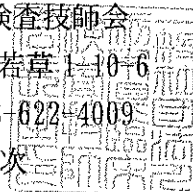 検査技師会
若草1-10-6
622-4009
次